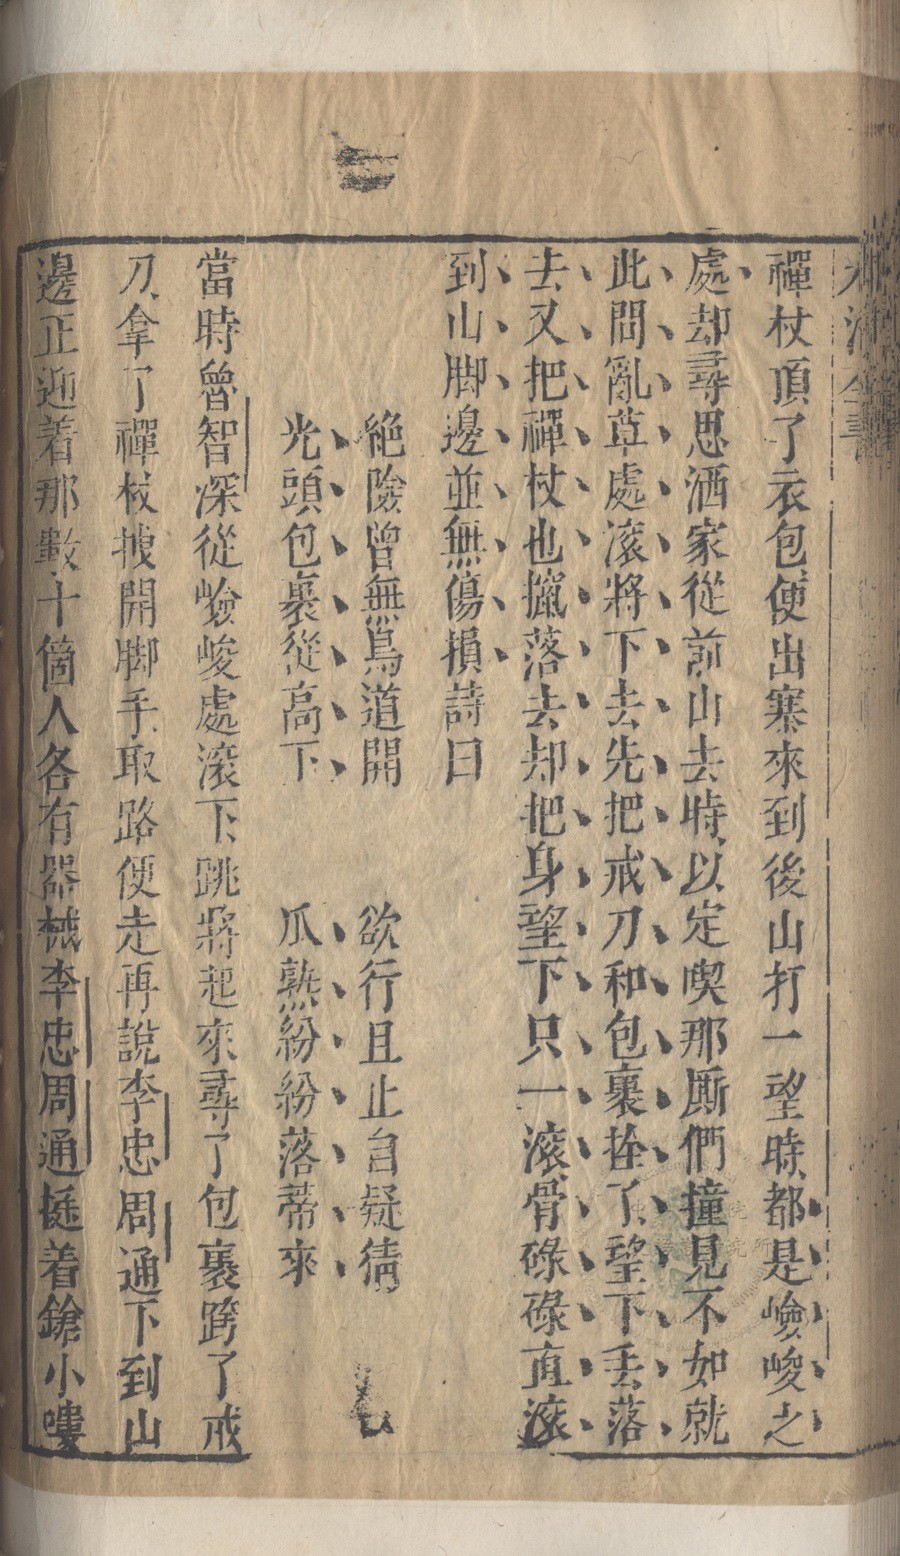 水滸全書
禪杖頂了衣包便出寨來到後山打一望時都是嶮峻之
處却尋思洒家從前山去時以定喫那厮們撞見不如就
此間亂草處滚將下去先把戒刀和包裹拴了望下丢落
去又把禪杖也攛落去却把身望下只一滚骨碌碌直滚
到山脚邊並無傷損詩曰
絶險曾無鳥道開　欲行且止自疑猜
光頭包裹從高下　瓜熟紛紛落蒂來
當時魯智深從嶮峻處滚下跳將起來尋了包裹跨了戒
刀拿了禪杖拽開脚手取路便走再說李忠周通下到山
邊正迎着那數十箇人各有器械李忠周通挺着鎗小嘍